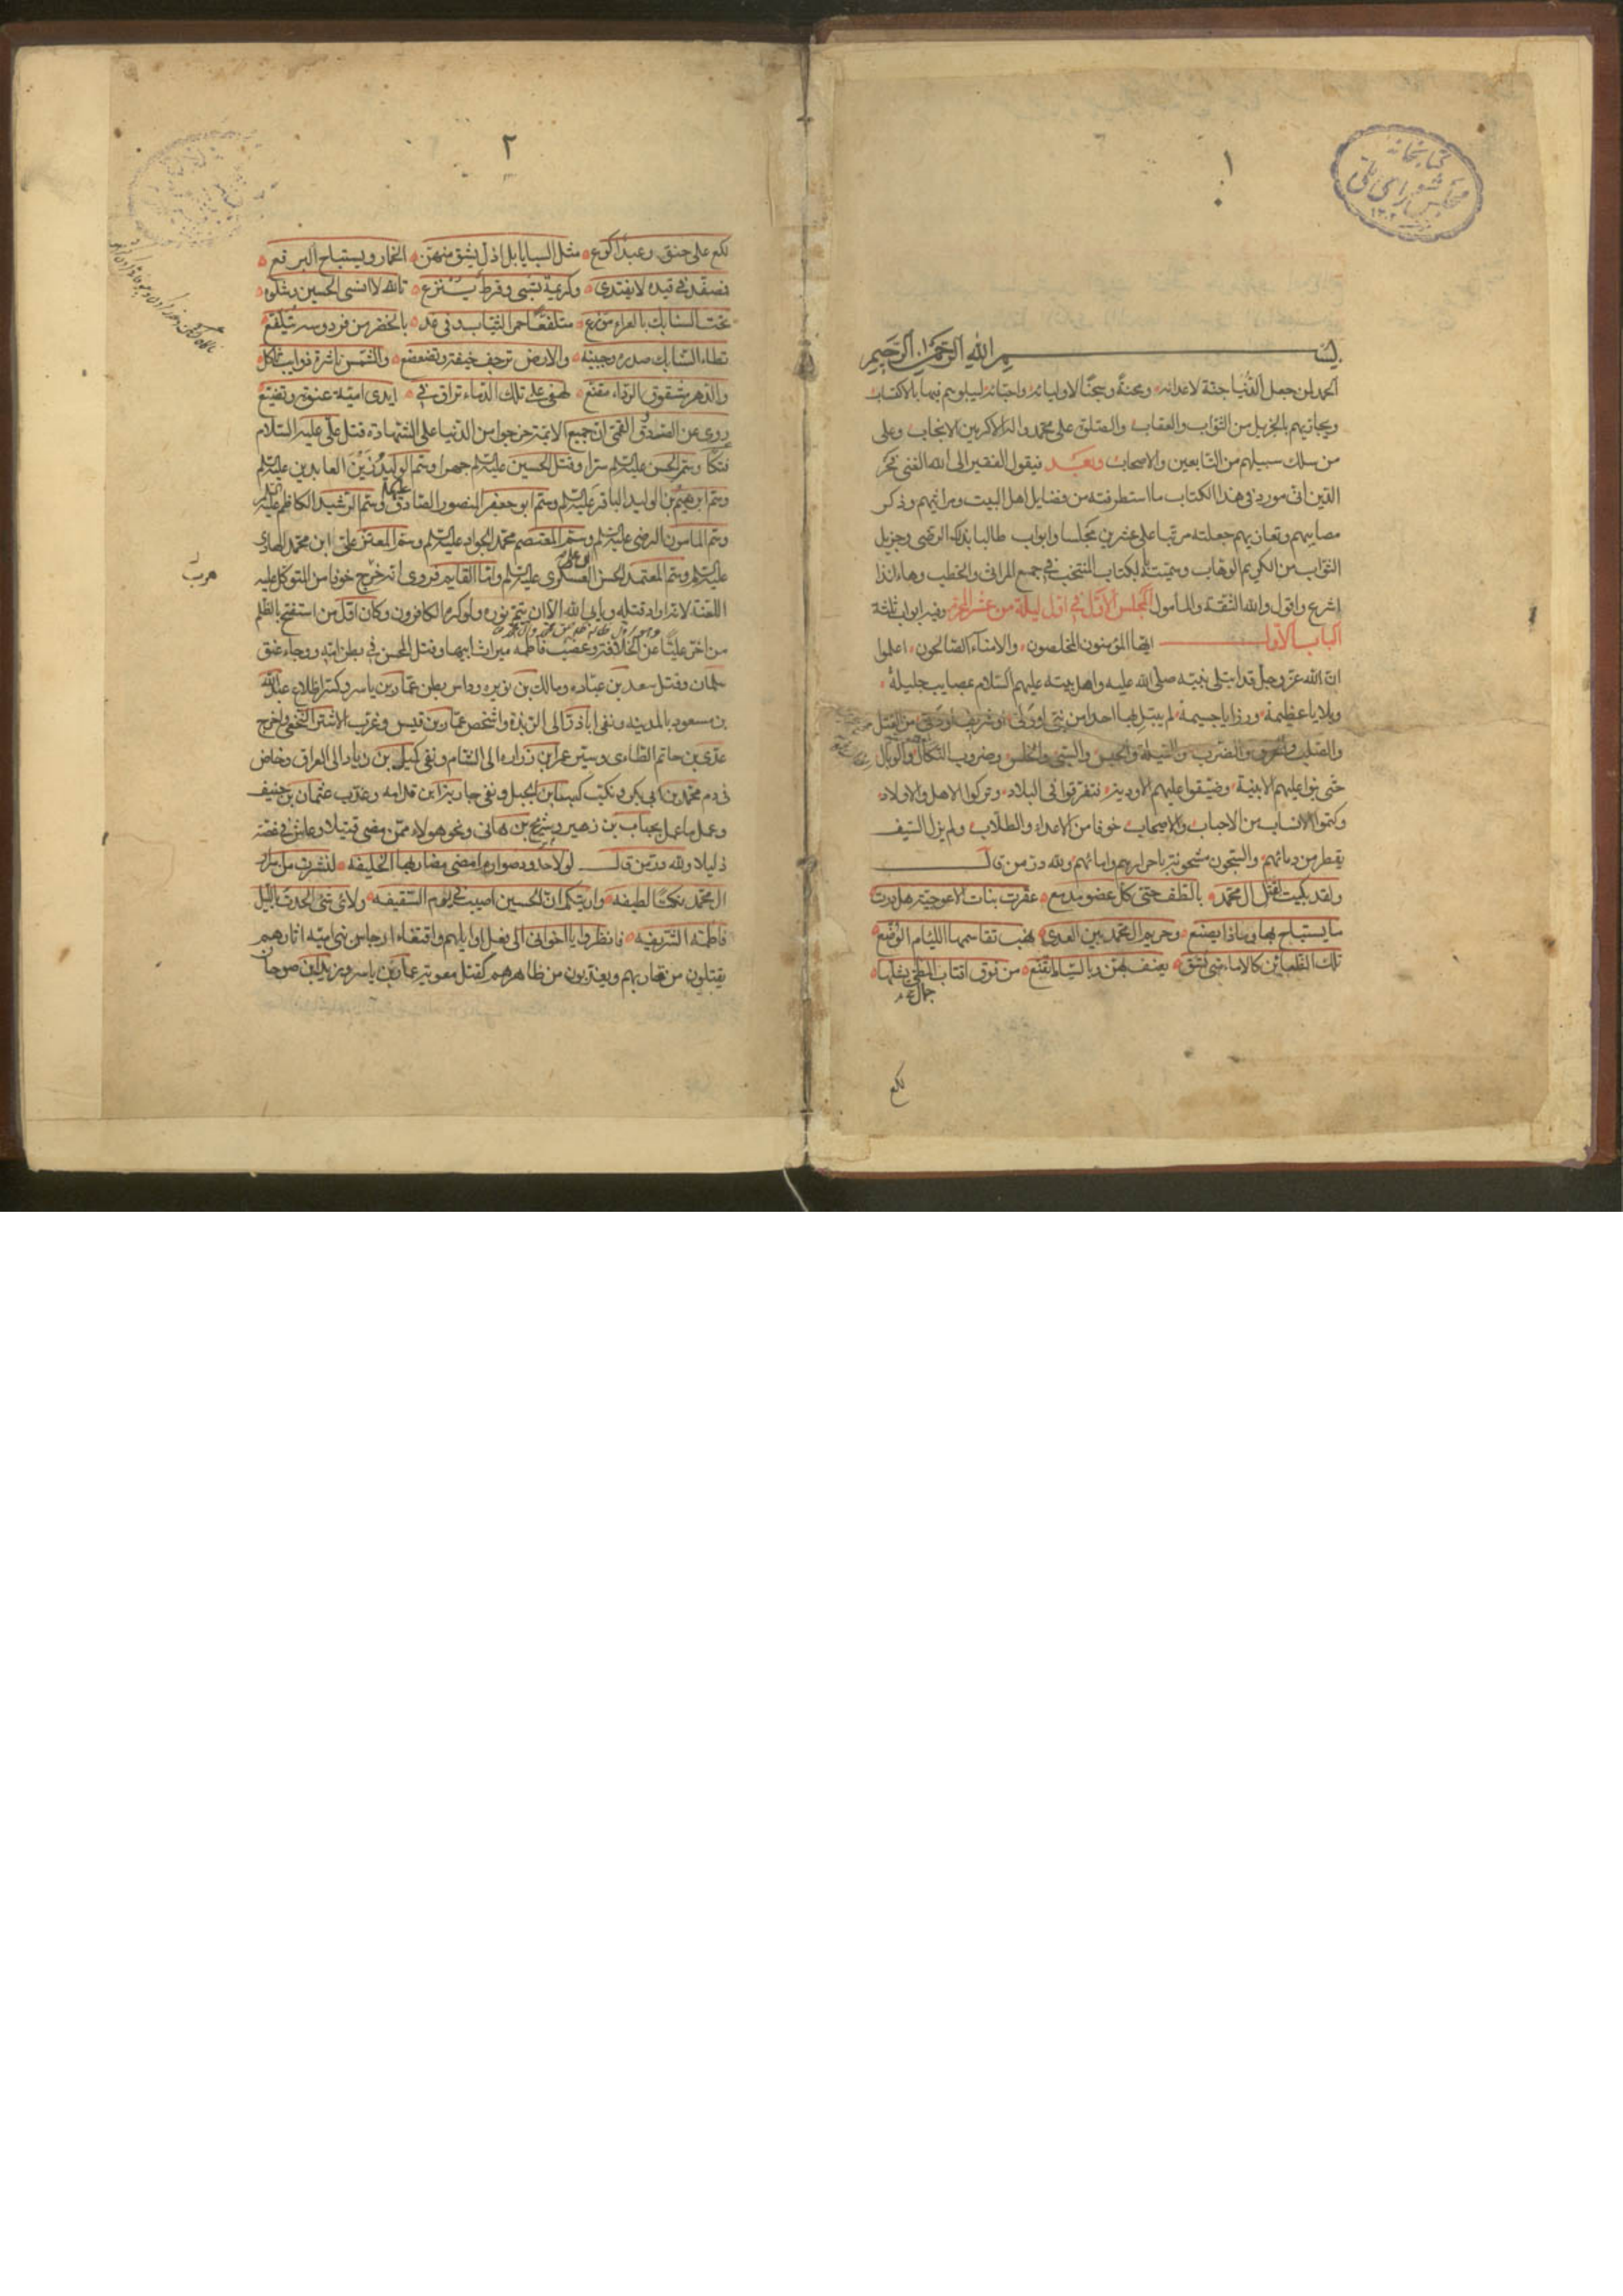 ١
كتابخانه
مجلس شورای ملی
بسم الله الرحمن الرحيم
الحمد لمن جعل الدنيا جنة لاعدائه ومحنة وسجنا لاوليائه واحبائه ليبلوهم فيها بالاكتساب
ويجازيهم بالجزيل من الثواب والعقاب والصلوة على محمد واله الاكرمين الانجاب وعلى
من سلك سبيلهم من التابعين والاصحاب وبعد فيقول الفقير الى الله الغنى فخر
الدين انى مورد فى هذا الكتاب ما استطرفته من فضايل اهل البيت ومراثيهم وذكر
مصايبهم وتعازيهم جعلته مرتبا على عشرين مجلسا وابواب طالبا بذلك الرضى وجزيل
الثواب من الكريم الوهاب وسميته بكتاب المنتخب فى جمع المراثى والخطب وها انا اذا
اشرع واقول والله الثقة والمامول المجلس الاول فى اول ليلة من عشر المحرم وفيه ابواب ثلثة
الباب الاول ايها المؤمنون المخلصون والامناء الصالحون اعلموا
ان الله عز وجل قد ابتلى نبيه صلى الله عليه واهل بيته عليهم السلام بمصايب جليلة
وبلايا عظيمة ورزايا جسيمة لم يبتل بها احدا من نبى او ولى او شريف او دنى من القتل
والصلب والحرق والضرب والغيلة والحبس والسبى والخلس وضروب النكال والوبال
حتى بنوا عليهم الابنية وضيقوا عليهم الاودية فتفرقوا فى البلاد وتركوا الاهل والاولاد
وكتموا الانساب من الاحباب والاصحاب خوفا من الاعداء والطلاب ولم يزل السيف
يقطر من دمائهم والسجون مشحونة باحرارهم وامائهم ولله در من قال
ولقد بكيت لقتل ال محمد بالطف حتى كل عضو مدمع عقرت بنات الاعوجية هل درت
ما يستباح بها وماذا يصنع وحريم ال محمد بين العدى نهب تقاسمها اللئام الوضع
تلك الظعائن كالاماء متى تسق يعنف بهن وبالسياط تقنع من فوق اقتاب المطى يشلها
لكع
٢
لكع على حنق وعبد اكوع مثل السبايا بل اذل يشق منهن الخمار ويستباح البرقع
فمصفد فى قيده لا يفتدى وكريمة تسبى وقرط ينزع تالله لا انسى الحسين وشلوه
تحت السنابك بالعراء موزع متلفعا حمر الثياب وفى غد بالخضر من فردوسه يتلفع
تطاء السنابك صدره وجبينه والارض ترجف خيفة وتضعضع والشمس ناشرة ذوايب ثاكل
والدهر مشقوق الرداء مقنع لهفى على تلك الدماء تراق فى ايدى امية عنوة وتضيع
روى عن الصدوق القمى ان جميع الائمة خرجوا من الدنيا على الشهادة قتل على عليه السلام
فتكا وسم الحسن عليه السلام سرا وقتل الحسين عليه السلام جهرا وسم الوليد زين العابدين عليه السلام
وسم ابرهيم بن الوليد الباقر عليه السلام وسم ابو جعفر المنصور الصادق وسم الرشيد الكاظم عليه السلام
وسم المامون الرضى عليه السلام وسم المعتصم محمد الجواد عليه السلام وسم المعتز على ابن محمد الهادى
عليه السلام وسم المعتمد الحسن العسكرى عليه السلام واما القايم فروى انه خرج خوفا من المتوكل عليه
اللعنة لانه اراد قتله ويابى الله الا ان يتم نوره ولو كره الكافرون وكان اول من استفتح بالظلم
من اخر عليا عن الخلافة وغصب فاطمه ميراث ابيها وقتل المحسن فى بطن امه ووجاء عنق
سلمان وقتل سعد بن عباده ومالك بن نويره وداس بطن عمار بن ياسر وكسر اظلاع عبد الله
بن مسعود بالمدينه ونفى اباذر الى الربذه واشخص عمار بن قيس وغرب الاشتر النخعى واخرج
عدى بن حاتم الطائى وسير عمر بن زراره الى الشام ونفى كميل بن زياد الى العراق وخاض
فى دم محمد بن ابى بكر ونكب كعب بن الجبل ونفى جارية ابن قدامه وعذب عثمان بن حنيف
وعمل ما عمل بحباب بن زهير وشريح بن هانى ونحو هولاء ممن مضى قتيلا وعاش فى غصة
ذليلا ولله در من قال لولا حدود صوارم امضى مضاربها الخليفه لنشرت من اسرار
ال محمد نكتا لطيفه واريتكم ان الحسين اصيب فى يوم السقيفه ولاى شئ الحدت بالليل
فاطمة الشريفه فانظروا يا اخوانى الى فعل اوايلهم واقتفاء ارجاس بنى اميه اثارهم
يقتلون من قاربهم ويعذبون من ظاهرهم كقتل معويه عمار بن ياسر وزيد ابن صوحان